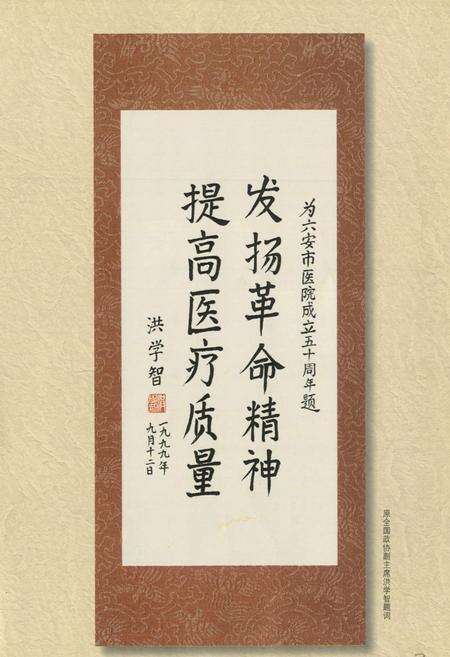 为六安市医院成立五十周年题
发扬革命精神
提高医疗质量
洪学智
一九九九年
九月十二日
原全国政协副主席洪学智题词